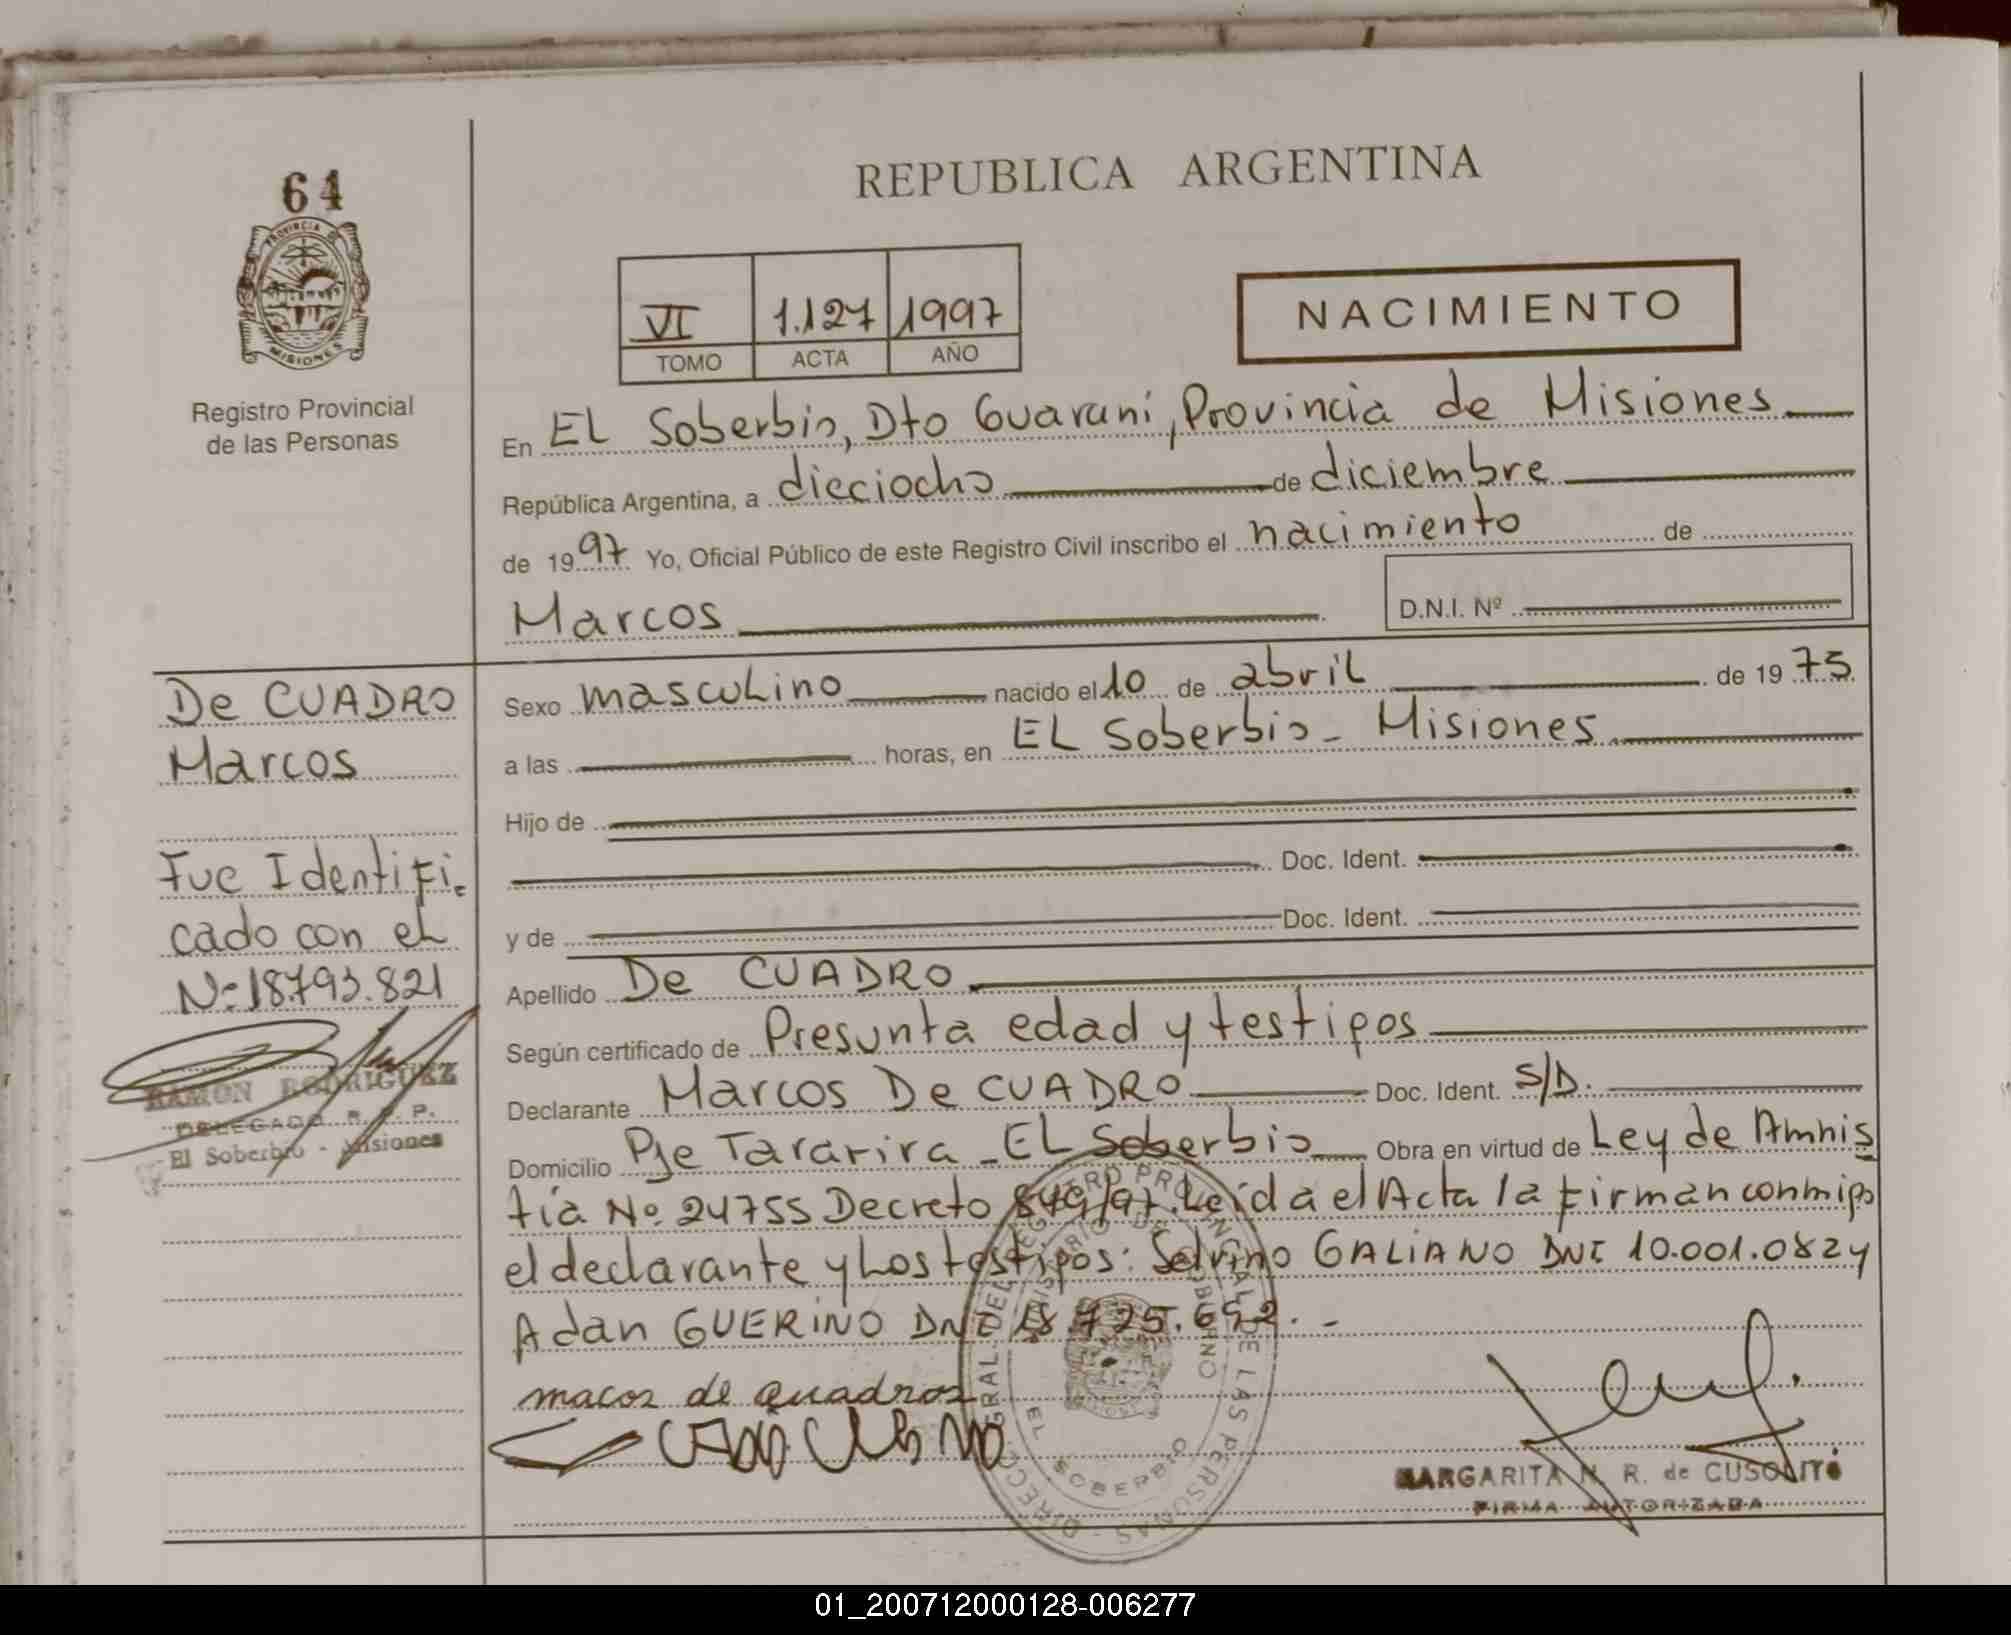 64
PROVINCIA DE
MISIONES
Registro Provincial
de las Personas
REPUBLICA ARGENTINA
VI 1.127 1997
TOMO ACTA AÑO
NACIMIENTO
En EL Soberbio, Dto Guaraní, Provincia de Misiones
República Argentina, a dieciocho de diciembre
de 1997 Yo, Oficial Público de este Registro Civil inscribo el nacimiento de
Marcos D.N.I. Nº
De CUADRO
Marcos
Fue Identifi-
cado con el
Nº 18.793.821
RAMON RODRIGUEZ
DELEGADO R. P. P.
El Soberbio - Misiones
Sexo masculino nacido el 10 de abril de 1975
a las horas, en EL Soberbio - Misiones
Hijo de
Doc. Ident.
y de Doc. Ident.
Apellido De CUADRO
Según certificado de Presunta edad y testigos
Declarante Marcos De CUADRO Doc. Ident. S/D.
Domicilio Pje Tararira - EL Soberbio Obra en virtud de Ley de Amnis
tía Nº 24755 Decreto 849/97. Leída el Acta la firman conmigo
el declarante y los testigos: Selvino GALIANO DNI 10.001.082 y
Adan GUERINO DNI 18.725.652. -
macos de quadros
DIRECC. GRAL. DEL REGISTRO PROVINCIAL DE LAS PERSONAS
EL SOBERBIO
MARGARITA N. R. de CUSOLITO
FIRMA AUTORIZADA
01_200712000128-006277